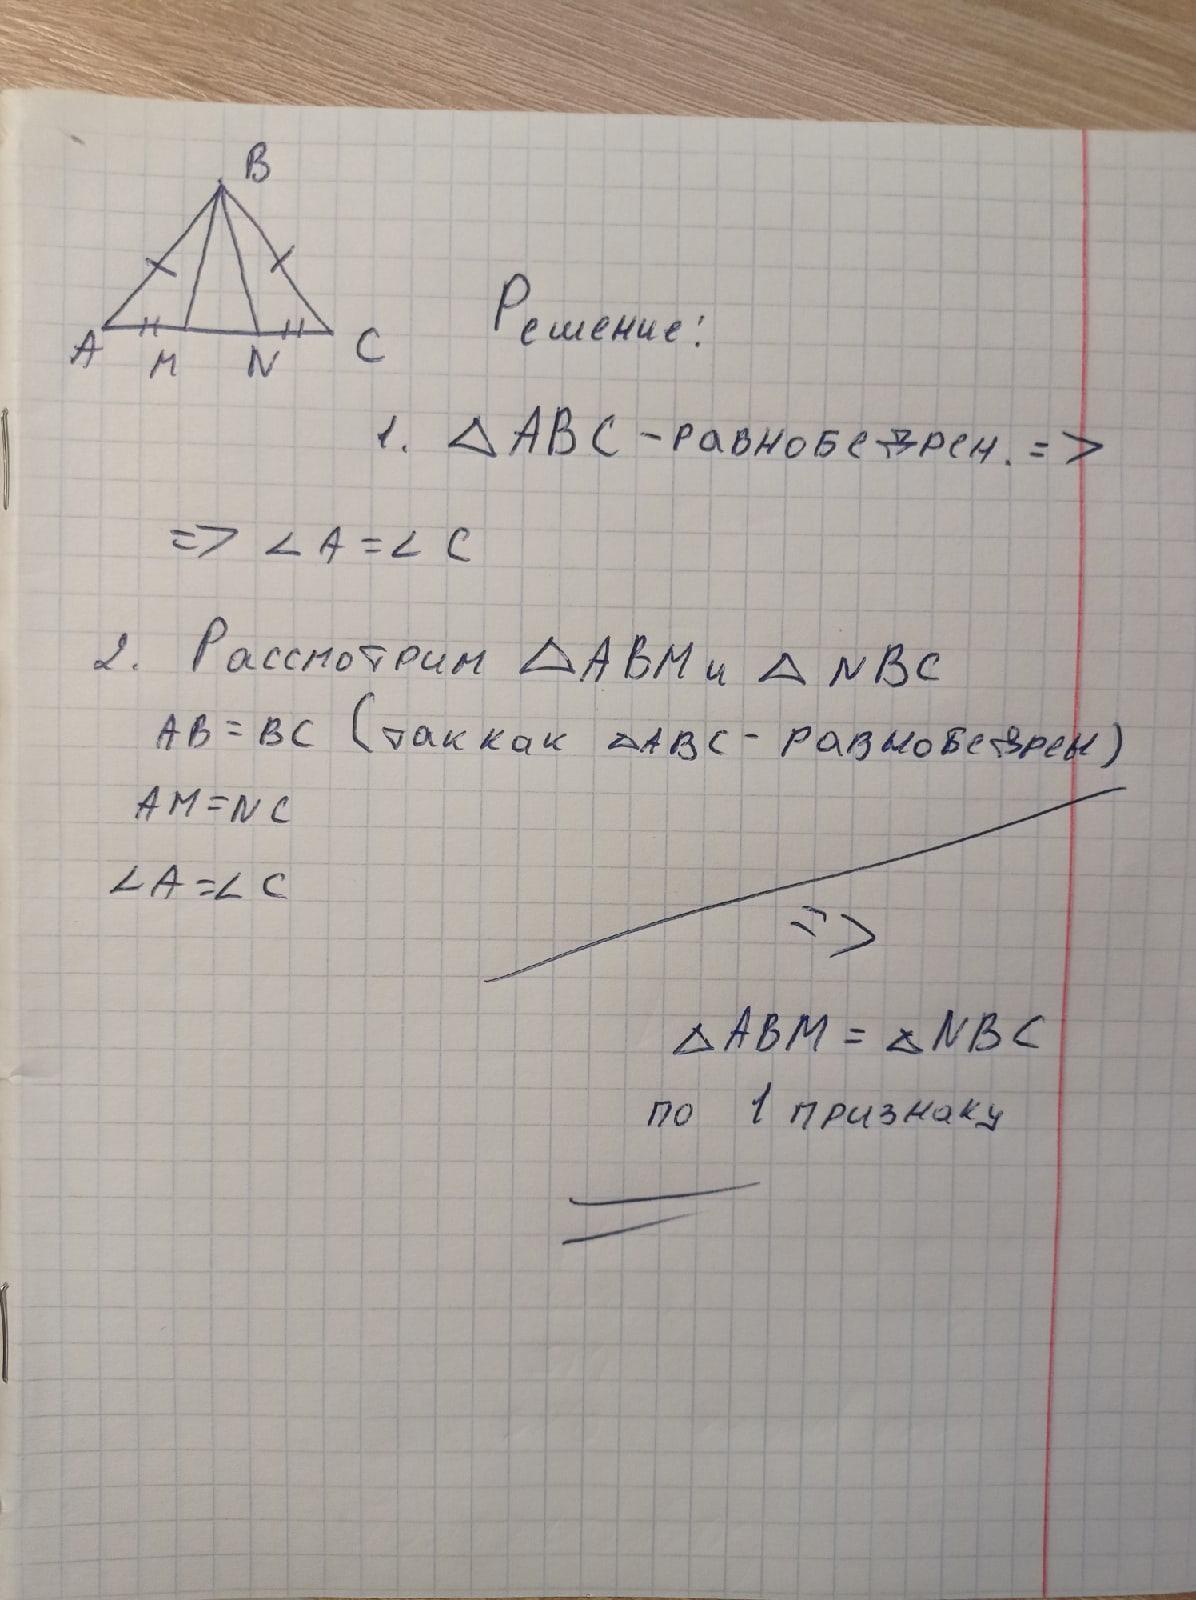 B
A M N C
Решение:
1. △ABC - равнобедрен. =>
=> ∠A = ∠C
2. Рассмотрим △ABM и △NBC
AB = BC (так как △ABC - равнобедрен)
AM = NC
∠A = ∠C
=>
△ABM = △NBC
по 1 признаку